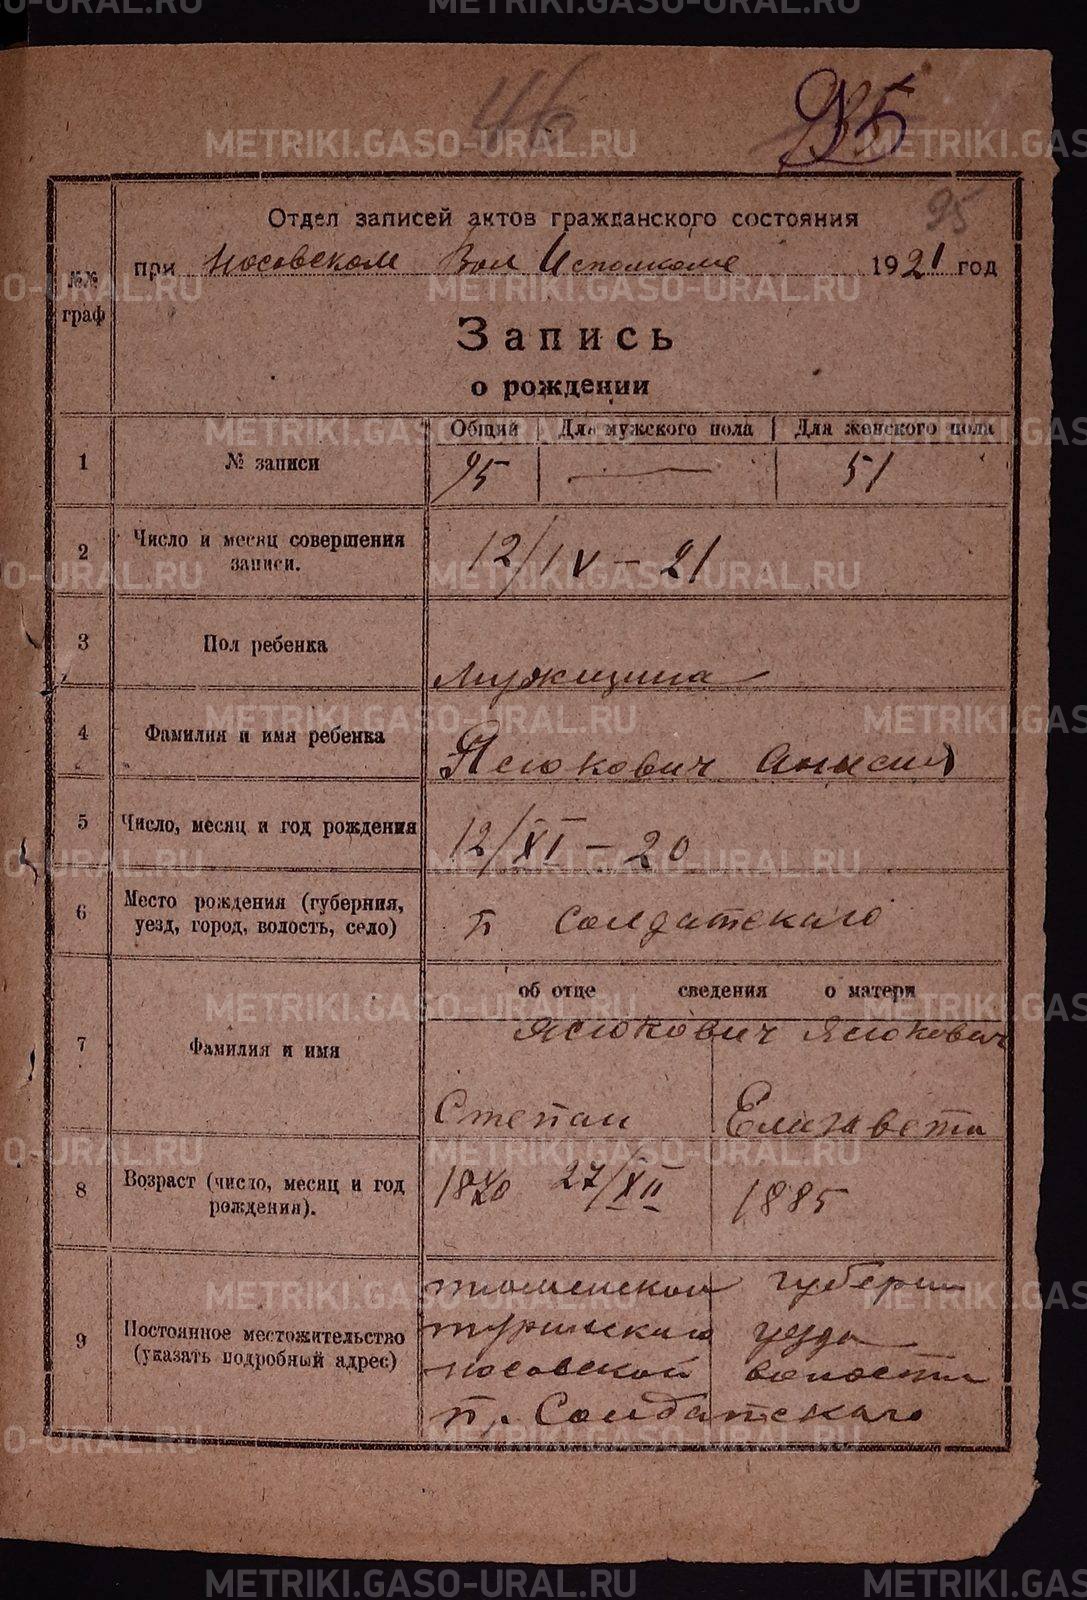 46
95
95
Отдел записей актов гражданского состояния
при Носовском Вол Исполкоме 1921 год
№№ граф
Запись
о рождении
Общий Для мужского пола Для женского пола
1 № записи 95 — 51
2 Число и месяц совершения записи. 12/IV – 21
3 Пол ребенка мужщина
4 Фамилия и имя ребенка Ясюкович Анисия
5 Число, месяц и год рождения 12/XI – 20
6 Место рождения (губерния, уезд, город, волость, село) п Солдатскаго
об отце сведения о матери
7 Фамилия и имя Ясюкович Ясюкович
Степан Елизавета
8 Возраст (число, месяц и год рождения). 27/XII 1885
9 Постоянное местожительство (указать подробный адрес) тюменской губерни
туринскаго уезда
носовской волости
п. Солдатскаго
METRIKI.GASO-URAL.RU